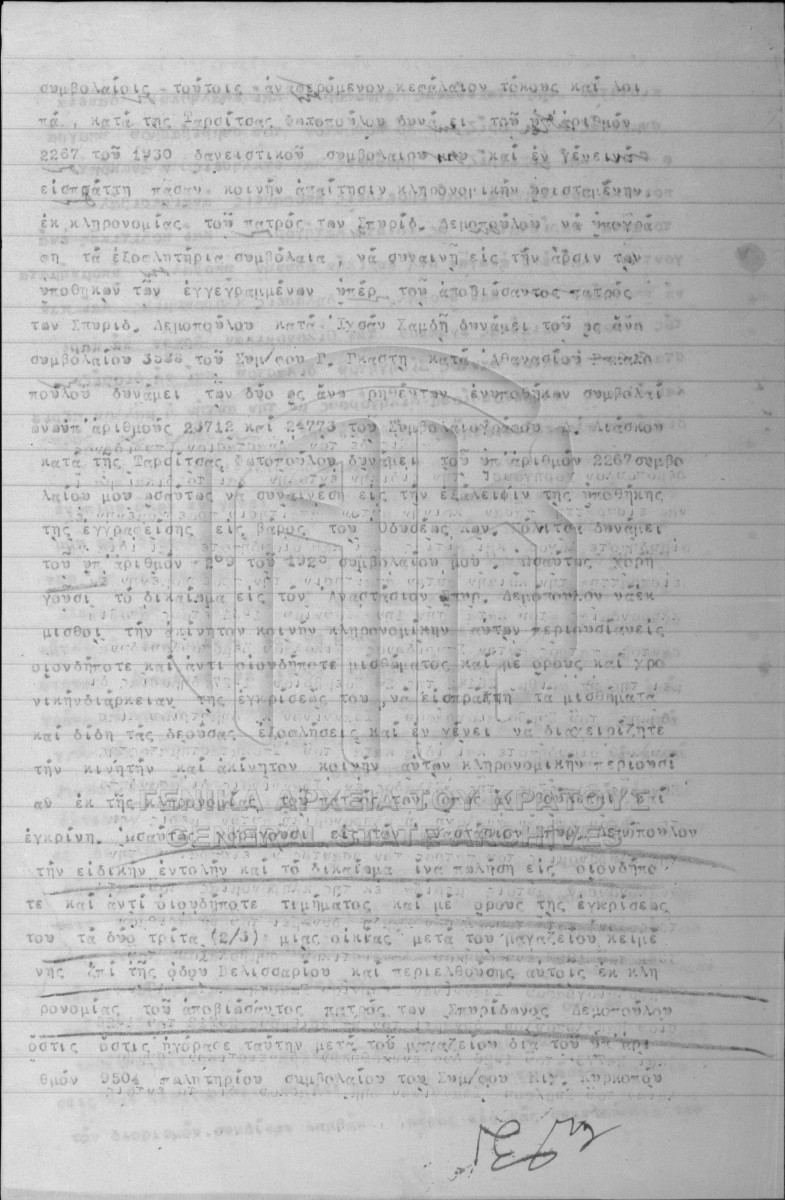 συμβολαίοις τούτοις ἀναφερόμενον κεφάλαιον τόκους καί λοι
πά , κατά τῆς Ταρσίτσας Φωτοπούλου δυνάμει τοῦ ὑπ ἀριθμόν
2267 τοῦ 1930 δανειστικοῦ συμβολαίου μου καί ἐν γένει νά
εἰσπράττη πᾶσαν κοινήν ἀπαίτησιν κληρονομικήν ὑφισταμένην
ἐκ κληρονομίας τοῦ πατρός των Σπυρίδ. Δεμοπούλου νά ὑπογρά
φη τά ἐξοφλητήρια συμβόλαια , νά συναινῆ εἰς τήν ἄρσιν τῶν
υποθηκῶν τῶν ἐγγεγραμμένων ὑπέρ τοῦ ἀποβιώσαντος πατρός
των Σπυριδ. Δεμοπούλου κατά Ἰχσάν Χαμδῆ δυνάμει τοῦ ὡς ἄνω
συμβολαίου τοῦ Συμ/φου Γ. Γκάστη κατά Ἀθανασίου
πούλου δυνάμει τῶν δύο ὡς ἄνω ρηθέντων ἐνυποθήκων συμβολαί
ωνυπ ἀριθμούς 23712 καί 24773 τοῦ Συμβολαιογράφου Δ. Λιάσκου
κατά τῆς Ταρσίτσας Φωτοπούλου δυνάμει τοῦ ὑπ ἀριθμόν 2267 συμβο
λαίου μου ὡσαύτως νά συναινέση εἰς τήν ἐξάλειψιν τῆς ὑποθήκης
τῆς ἐγγραφείσης εἰς βάρος τοῦ Ὀδυσέως Κων. δυνάμει
τοῦ ὑπ ἀριθμόν τοῦ συμβολαίου μου . Ὡσαύτως χορη
γοῦσι τό δικαίωμα εἰς τόν Ἀναστάσιον Σπυρ. Δεμόπουλον νάεκ
μισθοῖ τήν ἀκίνητον κοινήν κληρονομικήν αὐτῶν περιουσίανείς
οἱονδήποτε καί ἀντί οἱουδήποτε μισθώματος καί μέ ὅρους καί χρο
νικήνδιάρκειαν τῆς ἐγκρίσεώς του ,νά εἰσπράττη τά μισθώματα
καί δίδη τάς δεούσας ἐξοφλήσεις καί ἐν γένει νά διαχειρίζητε
τήν κινητήν καί ἀκίνητον κοινήν αὐτῶν κληρονομικήν περιουσί
αν ἐκ τῆς κληρονομίας τοῦ πατρός των ὡς ἄν καί
ἐγκρίνη. Ὡσαύτως χορηγοῦσι εἰς τόν Ἀναστάσιον Σπυρ. Δεμόπουλον
τήν εἰδικήν ἐντολήν καί τό δικαίωμα ἵνα πωλήση εἰς οἱονδήπο
τε καί ἀντί οἱουδήποτε τιμήματος καί μέ ὅρους τῆς ἐγκρίσεώς
του τά δύο τρίτα (2/3) μιᾶς οἰκίας μετά τοῦ μαγαζείου κειμέ
νης ἐπί τῆς ὁδοῦ Βελισσαρίου καί περιελθούσης αὐτοῖς ἐκ κλη
ρονομίας τοῦ ἀποβιώσαντος πατρός των Σπυρίδωνος Δεμοπούλου
ὅστις ὅστις ἠγόρασε ταύτην μετά τοῦ μαγαζείου διά τοῦ ὑπ ἀρι
θμόν 9504 πωλητηρίου συμβολαίου τοῦ Συμ/φου Μιχ. Κυρκοπού
ΓΕΝΙΚΑ ΑΡΧΕΙΑ ΤΟΥ ΚΡΑΤΟΥΣ
GENERAL STATE ARCHIVES